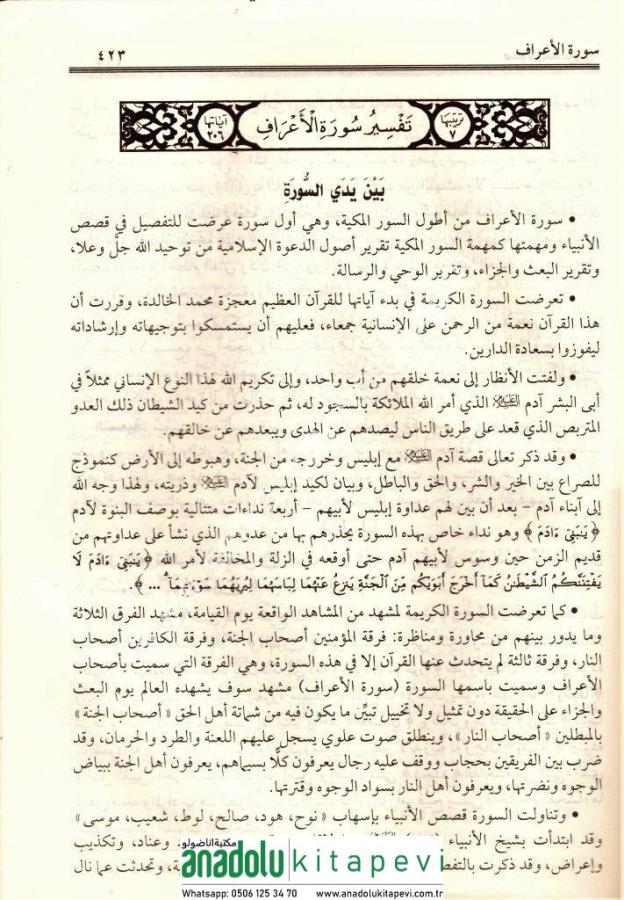 سورة الأعراف
٤٢٣
ترتيبها ٧
تَفْسِيرُ سُورَةِ الْأَعْرَافِ
آياتها ٢٠٦
بَيْنَ يَدَيِ السُّورَةِ
• سورة الأعراف من أطول السور المكية، وهي أول سورة عرضت للتفصيل في قصص
الأنبياء ومهمتها كمهمة السور المكية تقرير أصول الدعوة الإسلامية من توحيد الله جلّ وعلا،
وتقرير البعث والجزاء، وتقرير الوحي والرسالة.
• تعرضت السورة الكريمة في بدء آياتها للقرآن العظيم معجزة محمد الخالدة، وقررت أن
هذا القرآن نعمة من الرحمن على الإنسانية جمعاء، فعليهم أن يستمسكوا بتوجيهاته وإرشاداته
ليفوزوا بسعادة الدارين.
• ولفتت الأنظار إلى نعمة خلقهم من أب واحد، وإلى تكريم الله لهذا النوع الإنساني ممثلاً في
أبى البشر آدم الذي أمر الله الملائكة بالسجود له، ثم حذرت من كيد الشيطان ذلك العدو
المتربص الذي قعد على طريق الناس ليصدهم عن الهدى ويبعدهم عن خالقهم.
• وقد ذكر تعالى قصة آدم مع إبليس وخروجه من الجنة، وهبوطه إلى الأرض كنموذج
للصراع بين الخير والشر، والحق والباطل، وبيان لكيد إبليس لآدم وذريته، ولهذا وجه الله
إلى أبناء آدم - بعد أن بين لهم عداوة إبليس لأبيهم - أربعة نداءات متتالية بوصف البنوة لآدم
﴿ يَـٰبَنِىٓ ءَادَمَ ﴾ وهو نداء خاص بهذه السورة يحذرهم بها من عدوهم الذي نشأ على عداوتهم من
قديم الزمن حين وسوس لأبيهم آدم حتى أوقعه في الزلة والمخالفة لأمر الله ﴿ يَـٰبَنِىٓ ءَادَمَ لَا
يَفْتِنَنَّكُمُ ٱلشَّيْطَـٰنُ كَمَآ أَخْرَجَ أَبَوَيْكُم مِّنَ ٱلْجَنَّةِ يَنزِعُ عَنْهُمَا لِبَاسَهُمَا لِيُرِيَهُمَا سَوْءَٰتِهِمَآ ... ﴾.
• كما تعرضت السورة الكريمة لمشهد من المشاهد الواقعة يوم القيامة، مشهد الفرق الثلاثة
وما يدور بينهم من محاورة ومناظرة: فرقة المؤمنين أصحاب الجنة، وفرقة الكافرين أصحاب
النار، وفرقة ثالثة لم يتحدث عنها القرآن إلا في هذه السورة، وهي الفرقة التي سميت بأصحاب
الأعراف وسميت باسمها السورة (سورة الأعراف) مشهد سوف يشهده العالم يوم البعث
والجزاء على الحقيقة دون تمثيل ولا تخييل تبيّن ما يكون فيه من شماتة أهل الحق «أصحاب الجنة»
بالمبطلين «أصحاب النار»، وينطلق صوت علوي يسجل عليهم اللعنة والطرد والحرمان، وقد
ضرب بين الفريقين بحجاب ووقف عليه رجال يعرفون كلًّا بسيماهم، يعرفون أهل الجنة ببياض
الوجوه ونضرتها، ويعرفون أهل النار بسواد الوجوه وقترتها.
• وتناولت السورة قصص الأنبياء بإسهاب «نوح، هود، صالح، لوط، شعيب، موسى»
وقد ابتدأت بشيخ الأنبياء وعناد، وتكذيب
وإعراض، وقد ذكرت بالتفص وتحدثت عما نال
مكتبة اناضولو
anadolu kitapevi
Whatsapp: 0506 125 34 70 www.anadolukitapevi.com.tr